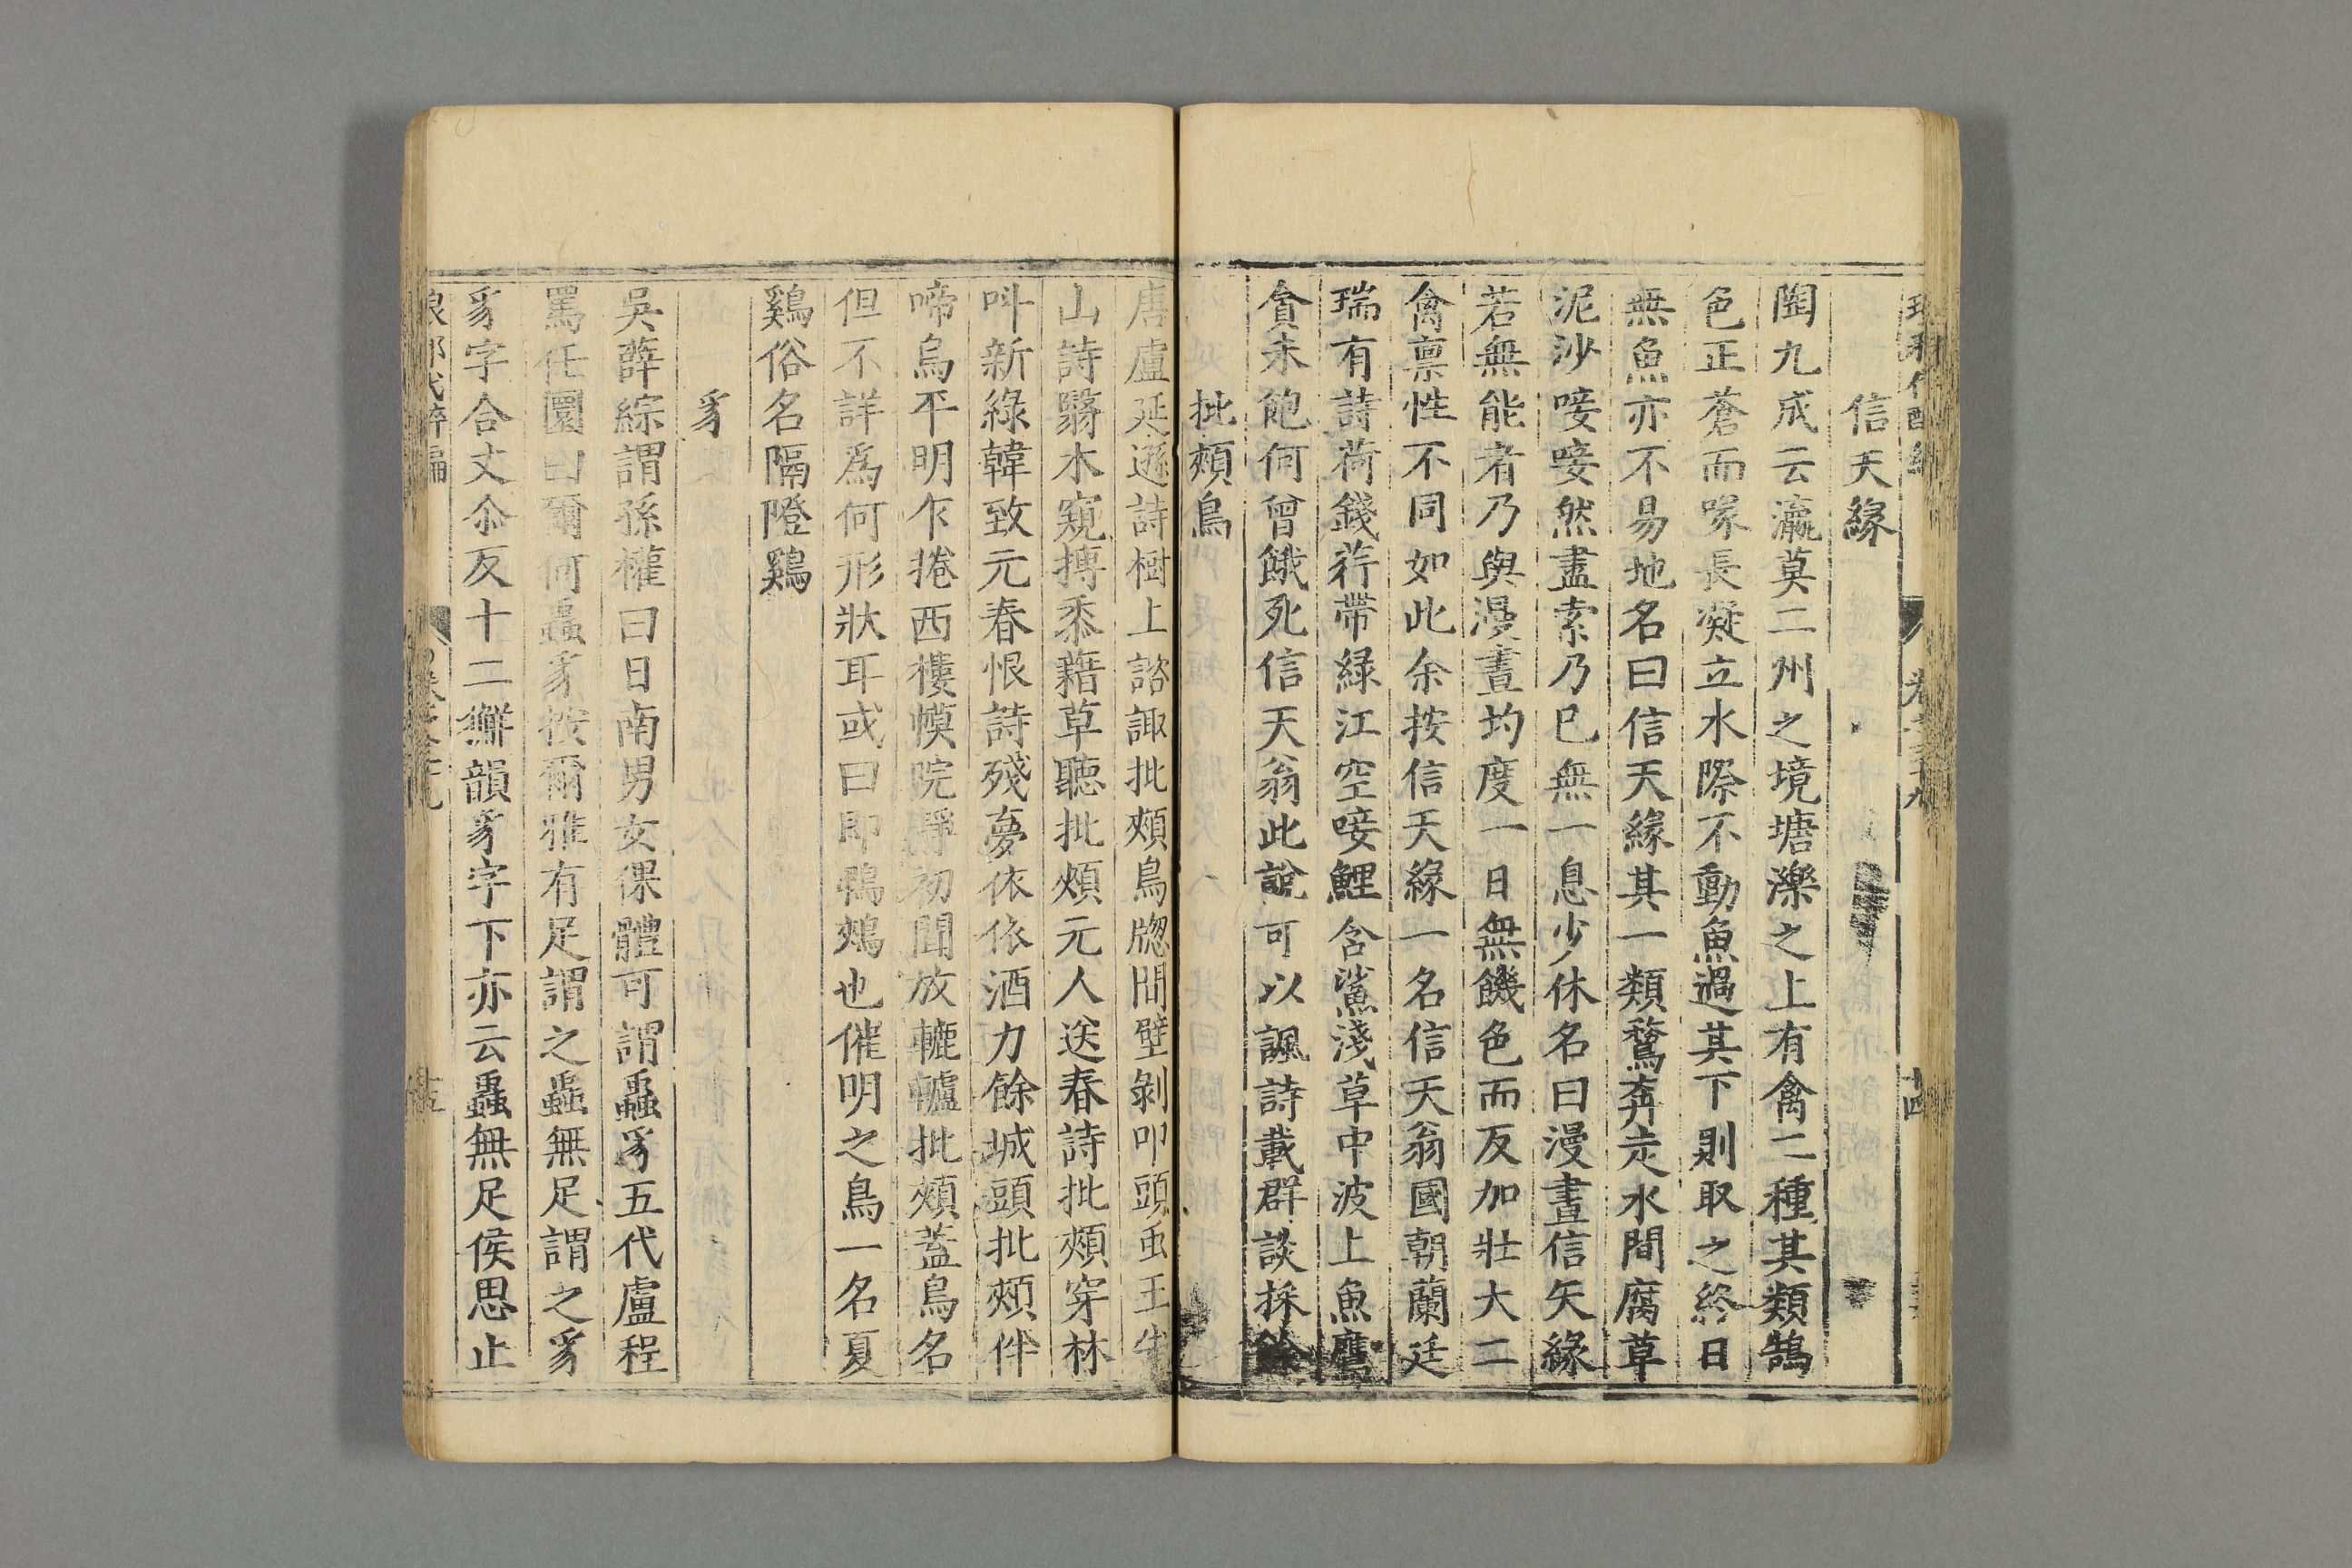 信天緣
陶九成云瀛莫二州之境塘濼之上有禽二種其類鵠
色正蒼而喙長凝立水際不動魚過其下則取之終日
無魚亦不易地名曰信天緣其一類鶩奔走水間腐草
泥沙唼唼然盡索乃已無一息少休名曰漫畫信天緣
若無能者乃與漫畫均度一日無饑色而反加壯大二
禽禀性不同如此余按信天緣一名信天翁國朝蘭廷
瑞有詩荷錢荇帶綠江空唼鯉含鯊淺草中波上魚鷹
貪未飽何曾餓死信天翁此說可以諷詩載群談採餘
批頰鳥
唐盧延遜詩樹上諮諏批頰鳥牕間壁剝叩頭虫王
山詩翳木窺摶黍藉草聽批頰元人送春詩批頰穿林
叫新綠韓致元春恨詩殘夢依依酒力餘城頭批頰伴
啼烏平明乍捲西樓幙院靜初聞放轆轤批頰蓋鳥名
但不詳爲何形狀耳或曰即鵯鵊也催明之鳥一名夏
鷄俗名隔隥鷄
豸
吳薛綜謂孫權曰日南男女倮體可謂蟲豸五代盧程
罵任圜曰爾何蟲豸按爾雅有足謂之蟲無足謂之豸
豸字合丈尒反十二蠏韻豸字下亦云蟲無足侯思止